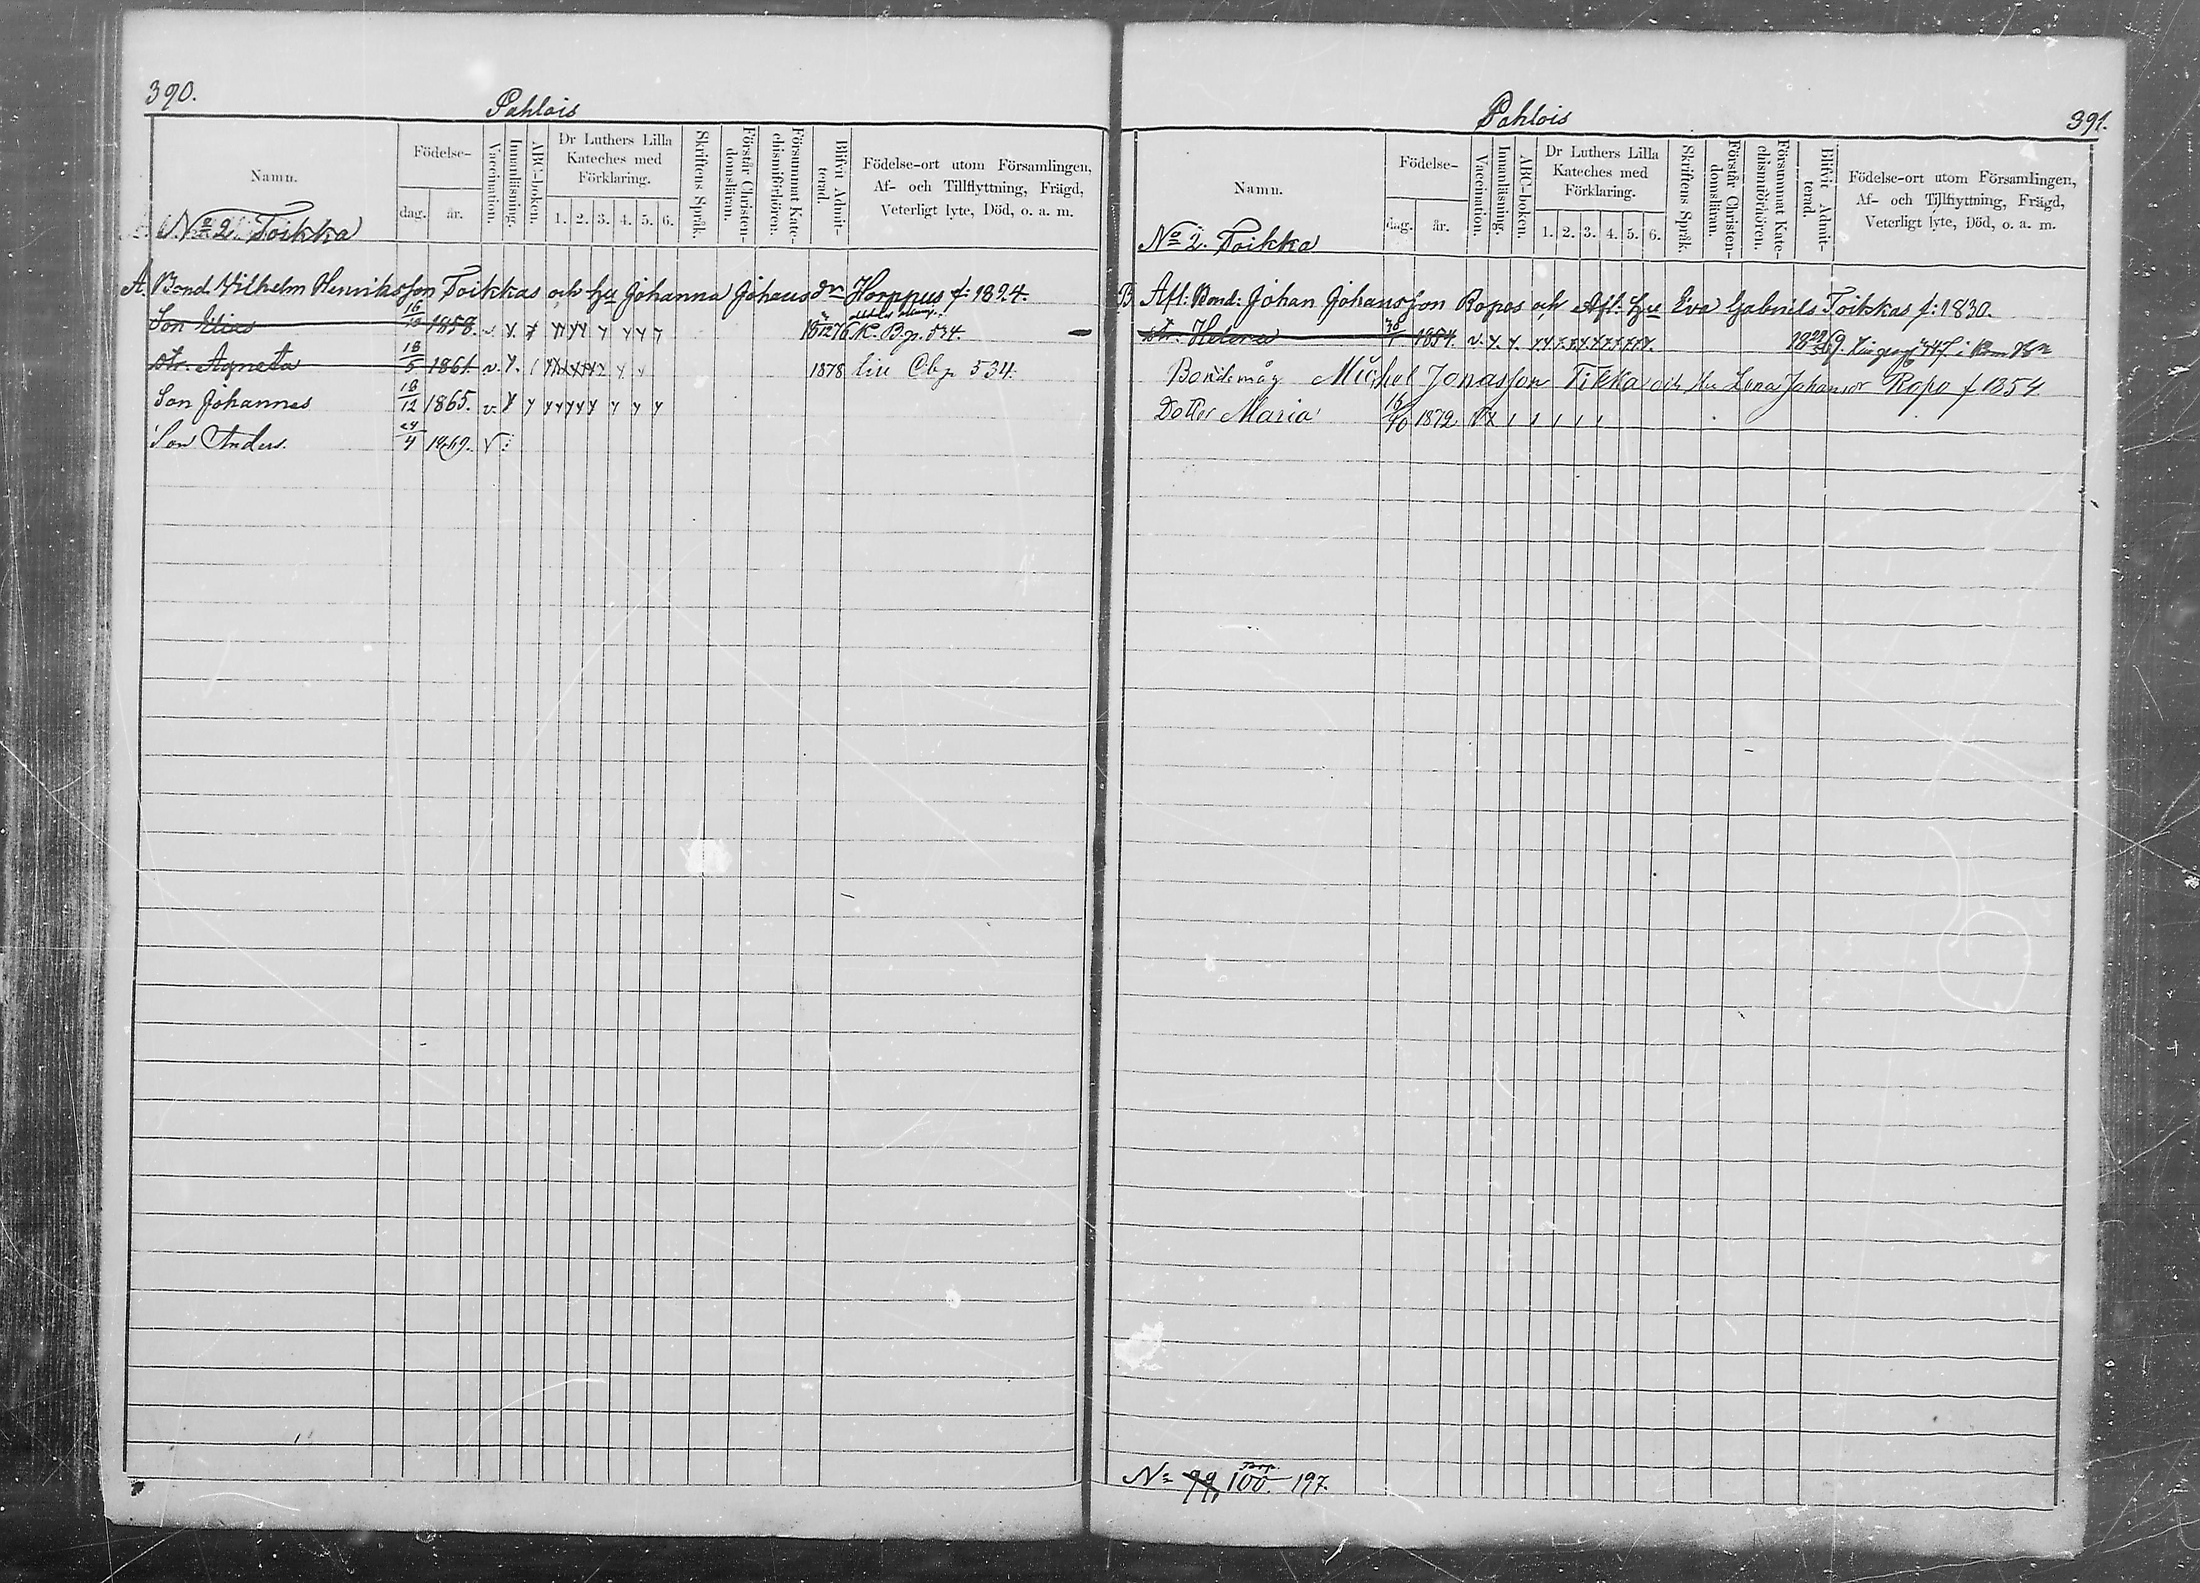 390.
Pahlois
Namn.
Födelse-
dag.
år.
Vaccination.
Innanläsning.
ABC-boken.
Dr Luthers Lilla
Kateches med
Förklaring.
1. 2. 3. 4. 5. 6.
Skriftens Språk.
Förstår Christen-
domsläran.
Försummat Kate-
chismiförhören.
Blifvit Admit-
terad.
Födelse-ort utom Församlingen,
Af- och Tillflyttning, Frägd,
Veterligt lyte, Död, o. a. m.
No 2. Toikka
A. Bond. Vilhelm Henriksson Toikkas och Hu Johanna Johans dr Horppus f: 1824.
Son Elias 16/10 1858. K. B. p. 534.
dtr. Agneta 18/5 1861 v. 1878 liu Cb p 534.
Son Johannes 18/12 1865. v.
Son Anders. 24/4 1869. v
Pahlois
391.
Namn.
Födelse-
dag.
år.
Vaccination.
Innanläsning.
ABC-boken.
Dr Luthers Lilla
Kateches med
Förklaring.
1. 2. 3. 4. 5. 6.
Skriftens Språk.
Förstår Christen-
domsläran.
Försummat Kate-
chismiförhören.
Blifvit Admit-
terad.
Födelse-ort utom Församlingen,
Af- och Tillflyttning, Frägd,
Veterligt lyte, Död, o. a. m.
No 2. Toikka
B. Afl: Bond: Johan Johansson Ropos och Afl: Hu Eva Gabriels Toikkas f: 1830.
dtr. Helena 1854. v.
Bondemåg Michel Jonasson Tikka och Hu Lena Johans dr Ropo f 1854
Dotter Maria 15/10 1872
No 99, 100 197.